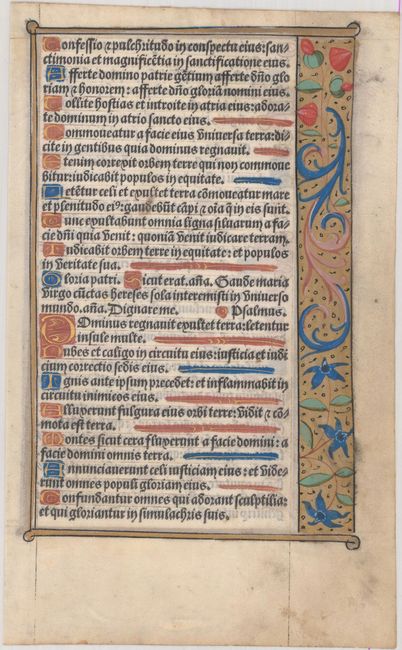 Confessio ⁊ pulchritudo in conspectu eius: san-
ctimonia et magnificẽtia in sanctificatione eius.
Afferte domino patrie gẽtium afferte dño glo
riam ⁊ honorem: afferte dño gloriã nomini eius.
Tollite hostias et introite in atria eius: adora-
te dominum in atrio sancto eius.
Commoueatur a facie eius vniuersa terra: di-
cite in gentibus quia dominus regnauit.
Etenim correxit orbem terre qui non commoue
bitur: iudicabit populos in equitate.
Letẽtur celi et exultet terra cõmoueatur mare
et plenitudo ei⁹: gaudebũt cãpi ⁊ oĩa q̃ in eis sunt.
Tunc exultabunt omnia ligna siluarum a fa-
cie dñi quia venit: quoniã venit iudicare terram.
Iudicabit orbem terre in equitate: et populos
in veritate sua.
Gloria patri. Sicut erat. aña. Gaude maria
virgo cũctas hereses sola interemisti in vniuerso
mundo. aña. Dignare me. Psalmus.
Dominus regnauit exultet terra: letentur
insule multe.
Nubes et caligo in circuitu eius: iusticia et iudi
cium correctio sedis eius.
Ignis ante ipsum precedet: et inflammabit in
circuitu inimicos eius.
Alluxerunt fulgura eius orbi terre: vidit ⁊ cõ-
mota est terra.
Montes sicut cera fluxerunt a facie domini: a
facie domini omnis terra.
Annunciauerunt celi iusticiam eius: et vide-
runt omnes populi gloriam eius.
Confundantur omnes qui adorant sculptilia:
et qui gloriantur in simulachris suis.